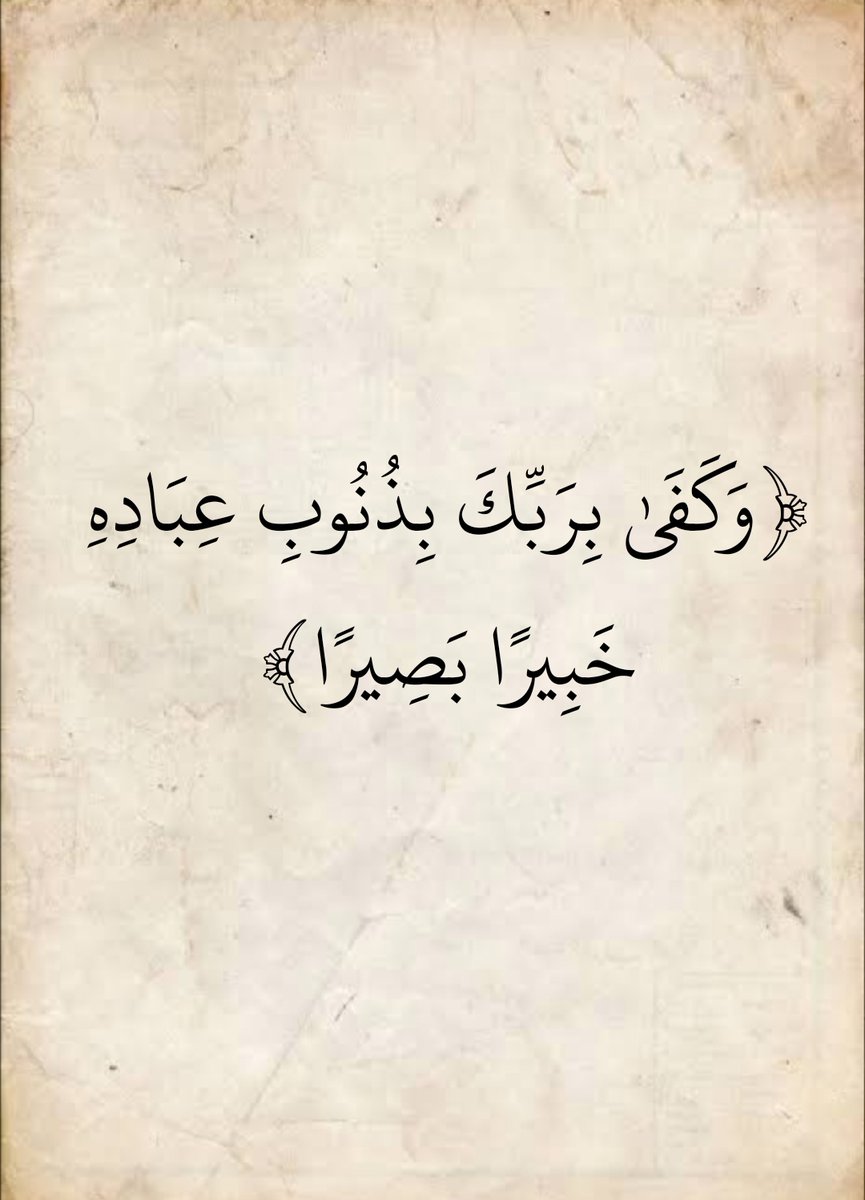 ﴿وَكَفَىٰ بِرَبِّكَ بِذُنُوبِ عِبَادِهِ
خَبِيرًا بَصِيرًا﴾